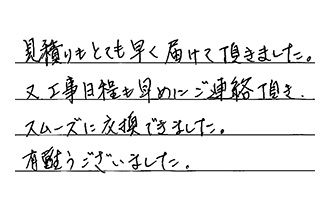 見積りもとても早く届けて頂きました。
又工事日程も早めにご連絡頂き、
スムーズに交換できました。
有難うございました。